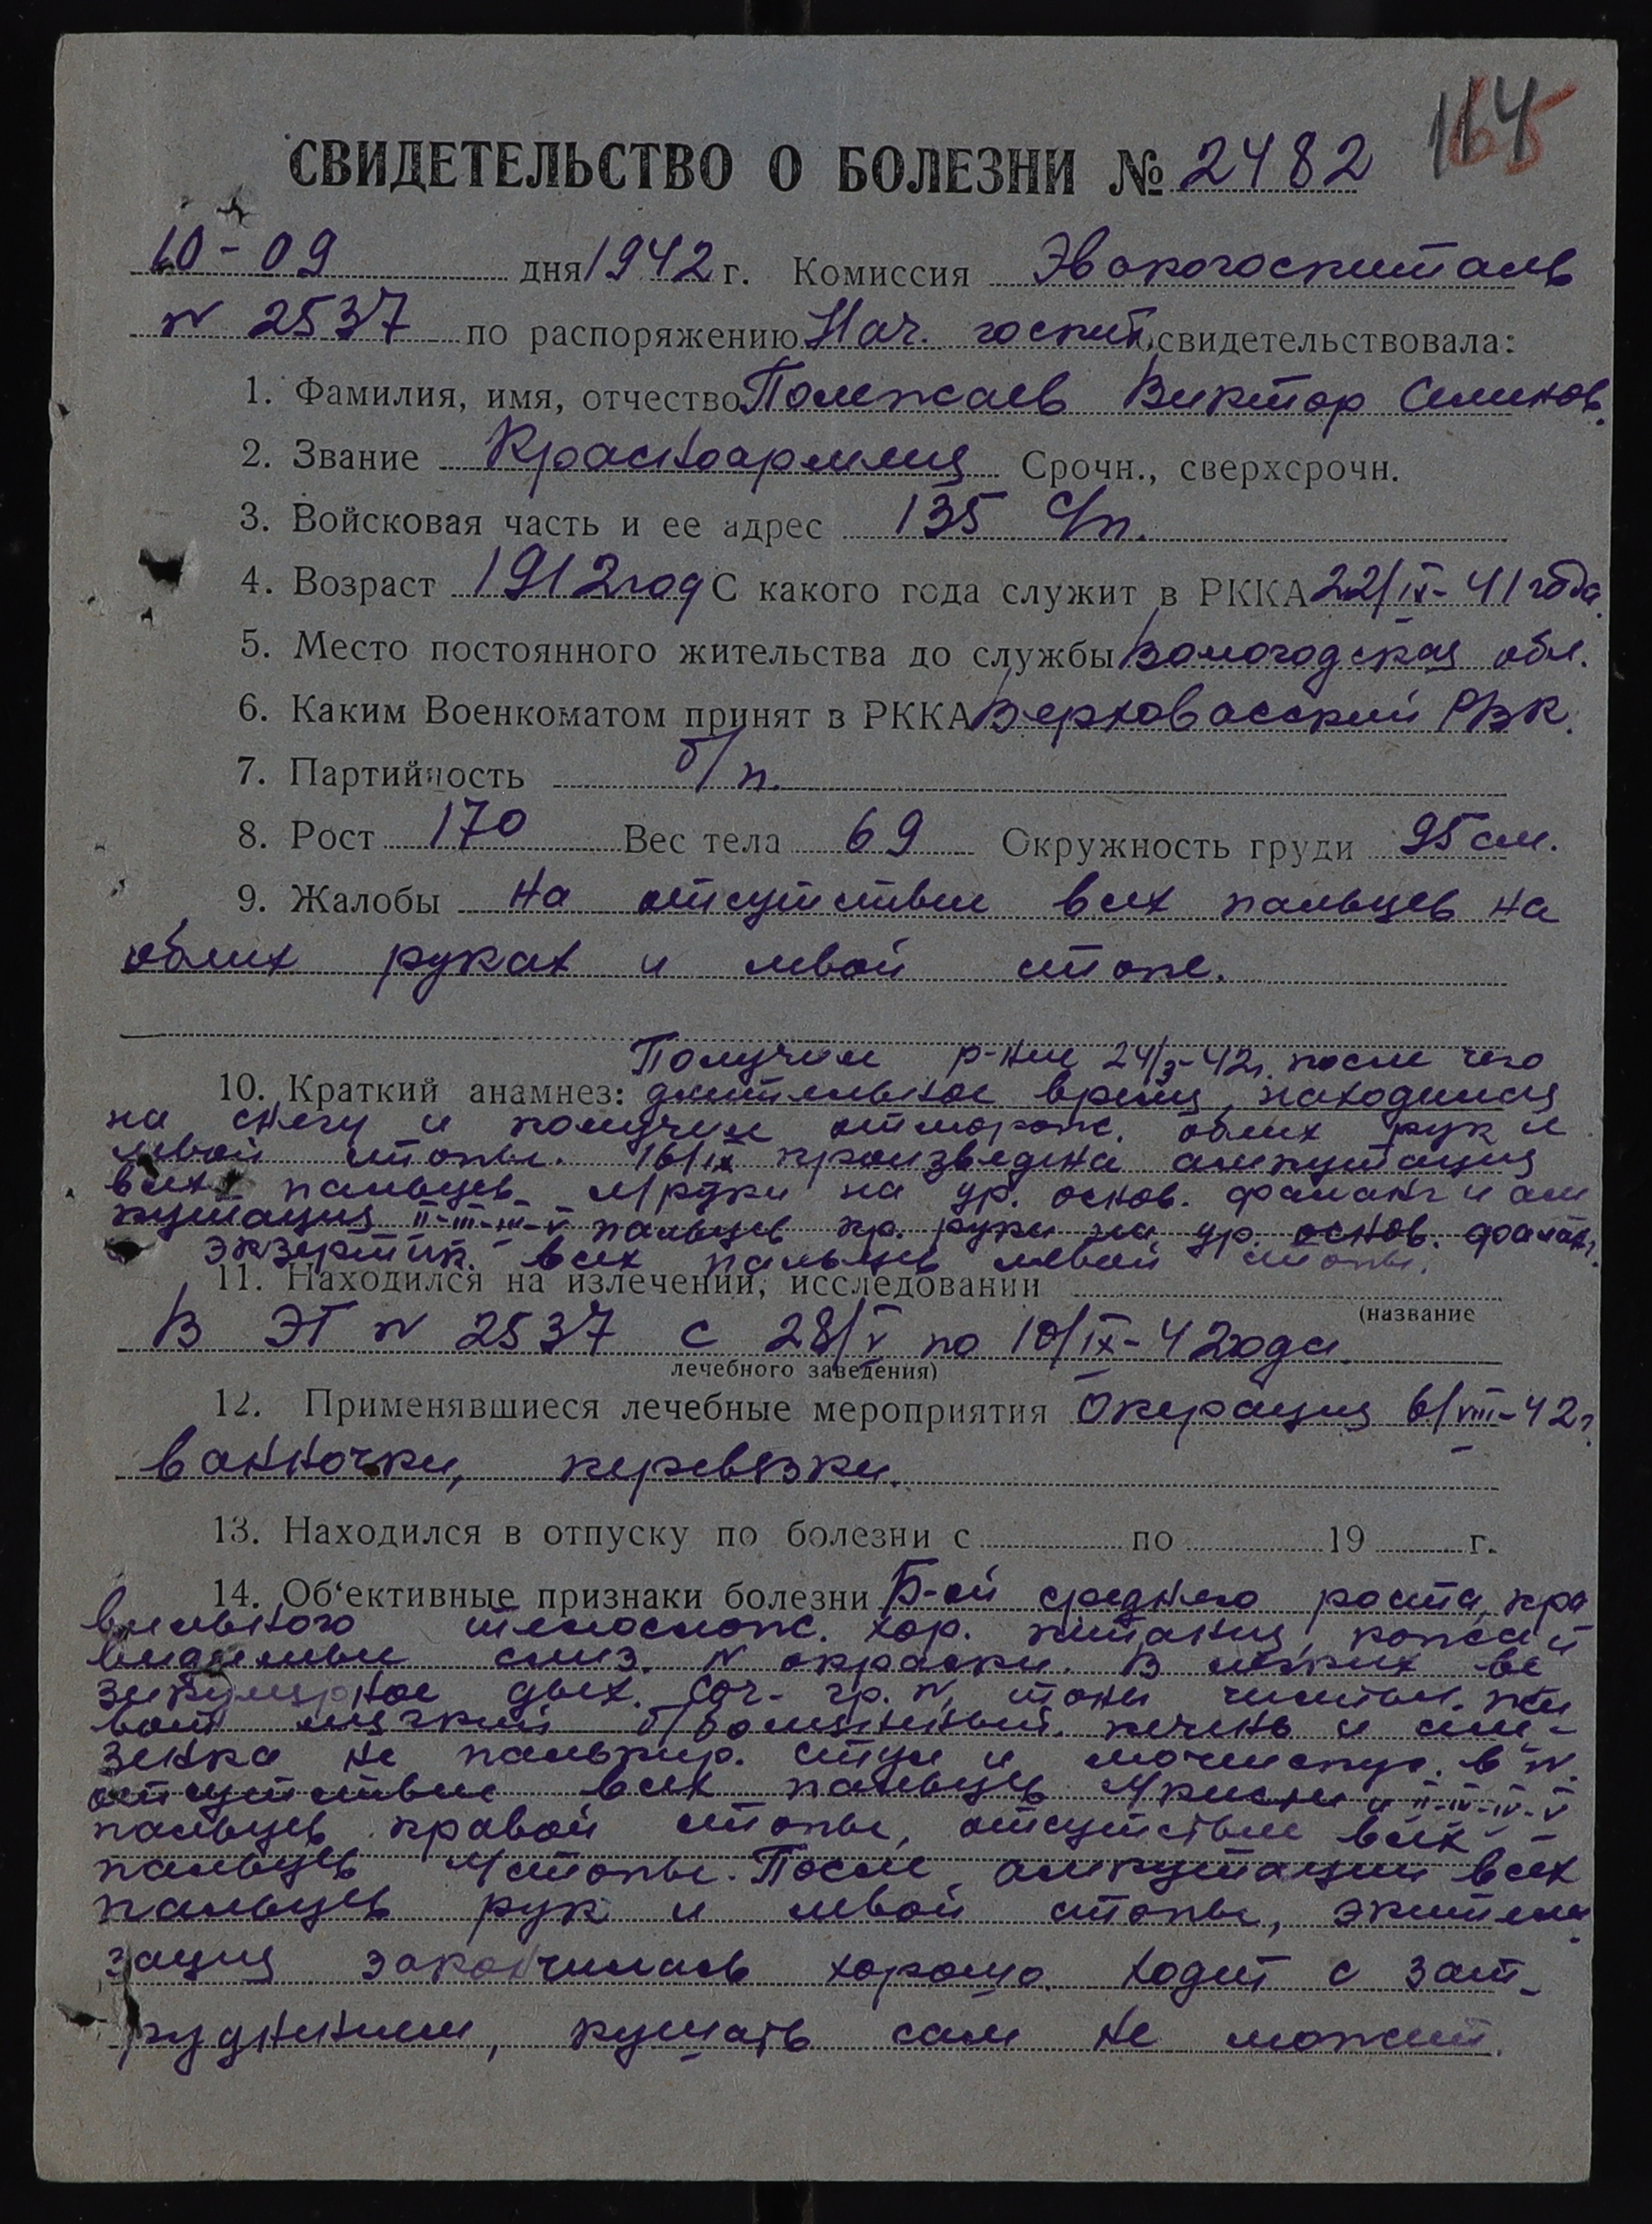 164
СВИДЕТЕЛЬСТВО О БОЛЕЗНИ № 2482
10-09 дня 1942 г. Комиссия Эвокогоспиталь
№ 2537 по распоряжению Нач. госпит. свидетельствовала:
1. Фамилия, имя, отчество Полежаев Виктор Семенов.
2. Звание Красноармеец Срочн., сверхсрочн.
3. Войсковая часть и ее адрес 135 с/п.
4. Возраст 1912 год С какого года служит в РККА 22/IX-41 года.
5. Место постоянного жительства до службы Вологодская обл.
6. Каким Военкоматом принят в РККА Верховасский РВК.
7. Партийность б/п.
8. Рост 170 Вес тела 69 Окружность груди 95 см.
9. Жалобы на отсутствие всех пальцев на
обеих руках и левой стопе.
Получил р-ние 24/3-42г. после чего
10. Краткий анамнез: длительное время находился
на снегу и получил отморож. обеих рук и
левой стопы. произведена ампутация
всех пальцев л/руки на ур. основ. фаланг и ам
путация II-III-IV-V пальцев пр. руки на ур. основ. фаланг.
всех пальцев левой стопы.
11. Находился на излечении, исследовании
(название
В ЭГ № 2537 с 28/V по 10/IX-42 года.
лечебного заведения)
12. Применявшиеся лечебные мероприятия Операция 6/VIII-42г.
ванночки, перевязки.
13. Находился в отпуску по болезни с по 19 г.
14. Об'ективные признаки болезни Б-ой среднего роста, пра
вильного телослож. хор. питания, кожа и
видимые слиз. N окраски. В легких ве
зикулярное дых. Сог. гр. N, тоны чистые. жи
вот мягкий б/болезненный. печень и селе-
зенка не пальпир. стул и мочеиспус. в N.
отсутствие всех пальцев л/кисти и II-III-IV-V
пальцев правой стопы, отсутствие всех
пальцев л/стопы. После ампутации всех
пальцев рук и левой стопы, эпители
зация закончилась хорошо. ходит с зат-
руднением, кушать сам не может.